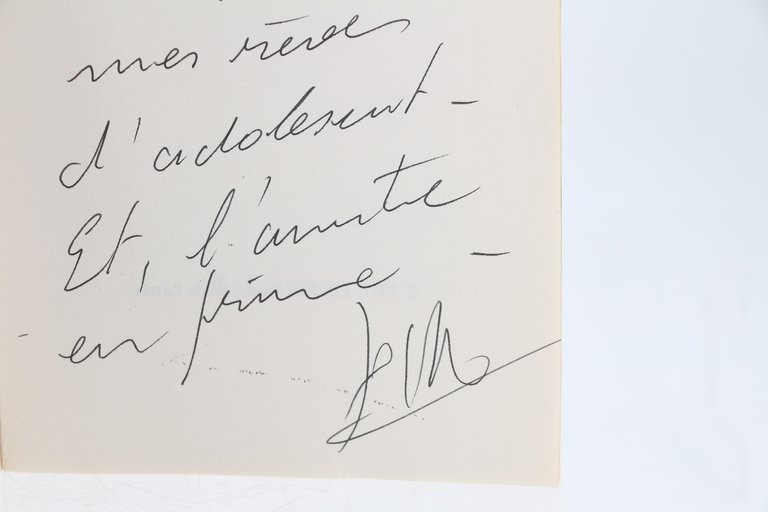 mes rêves
d'adolescent -
Et, l'amitié
en prime -